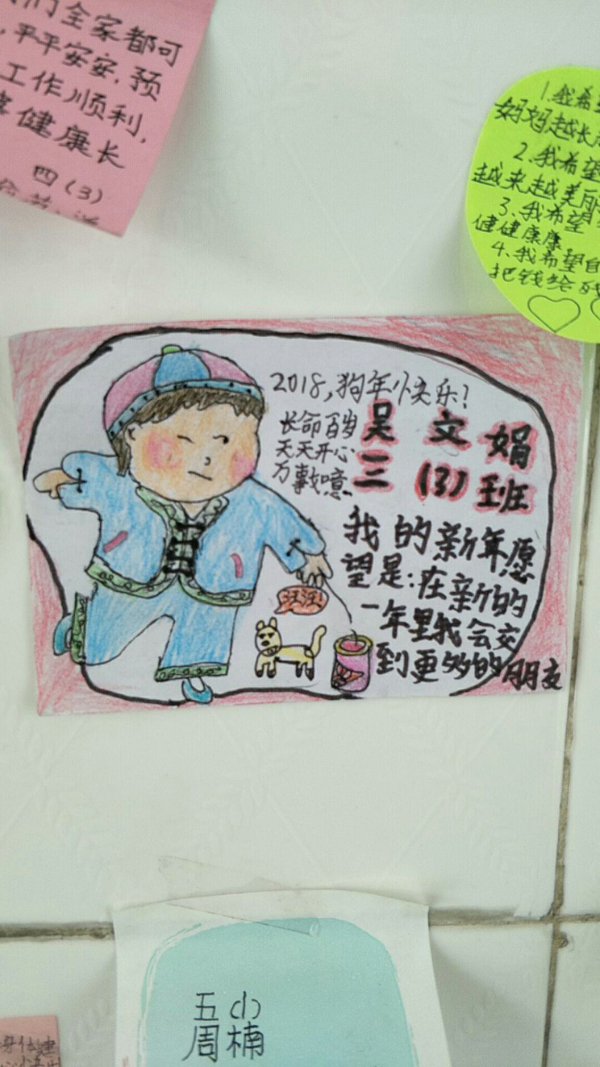 们全家都可
,平平安安,预
工作顺利,
健健康长
四(3)
1.我希
妈妈越长
2.我希望
越来越美丽
3.我希望
健健康康
4.我希望自
把钱给
2018,狗年快乐!
长命百岁
天天开心
万事如意
吴文娟
三(3)班
我的新年愿
望是:在新的
一年里我会交
到更多的朋友
汪汪!
五(1)
周楠
身体建